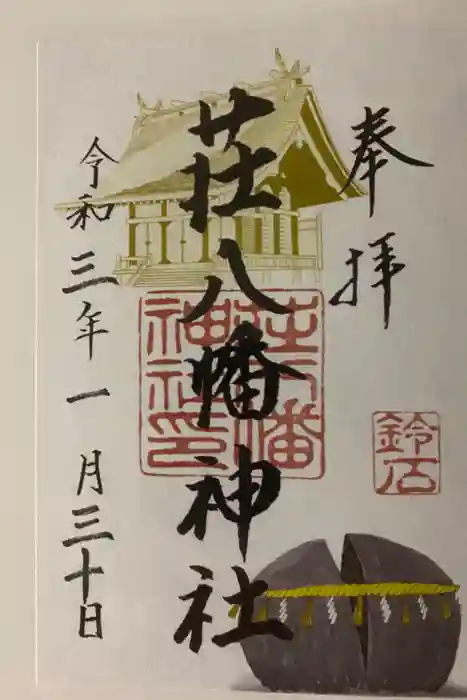 奉拝
荘八幡神社
荘八幡神社印
鈴石
令和三年一月三十日